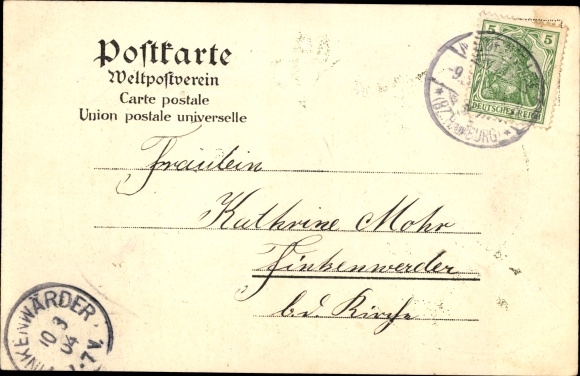 Postkarte
Weltpostverein
Carte postale
Union postale universelle
5 5
DEUTSCHES REICH
Fräulein
Kathrine Mohr
Finkenwerder
b. d. Kirche
FINKENWÄRDER
10 3
04
7 V.